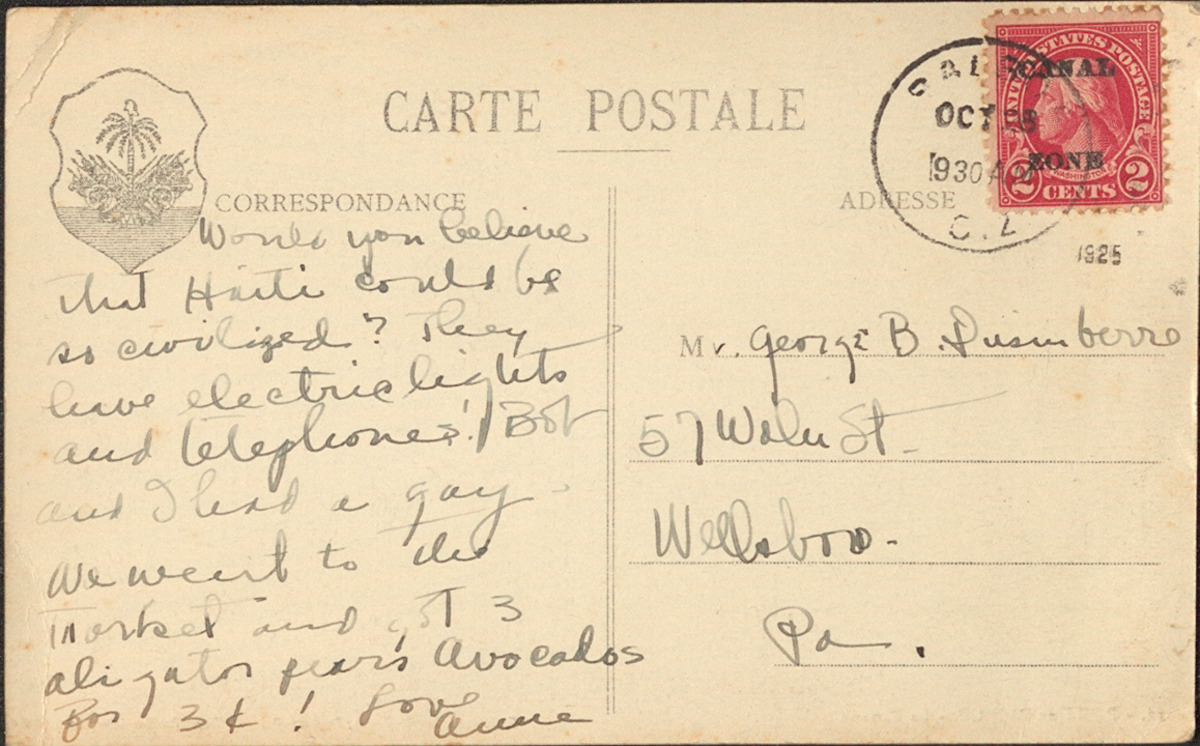 CARTE POSTALE
CORRESPONDANCE
Would you believe
that Haiti could be
so civilized? They
have electric lights
and telephones! Bob
and I had a gay -
We went to the
market and got 3
aligator pears Avocados
For 3¢! Love
Anne
ADRESSE
UNITED STATES POSTAGE
CANAL
ZONE
WASHINGTON
2 CENTS 2
OCT 28
930 A
C. Z.
1925
Mr. George B. Dusinberre
57 Waln St.
Wellsboro.
Pa.